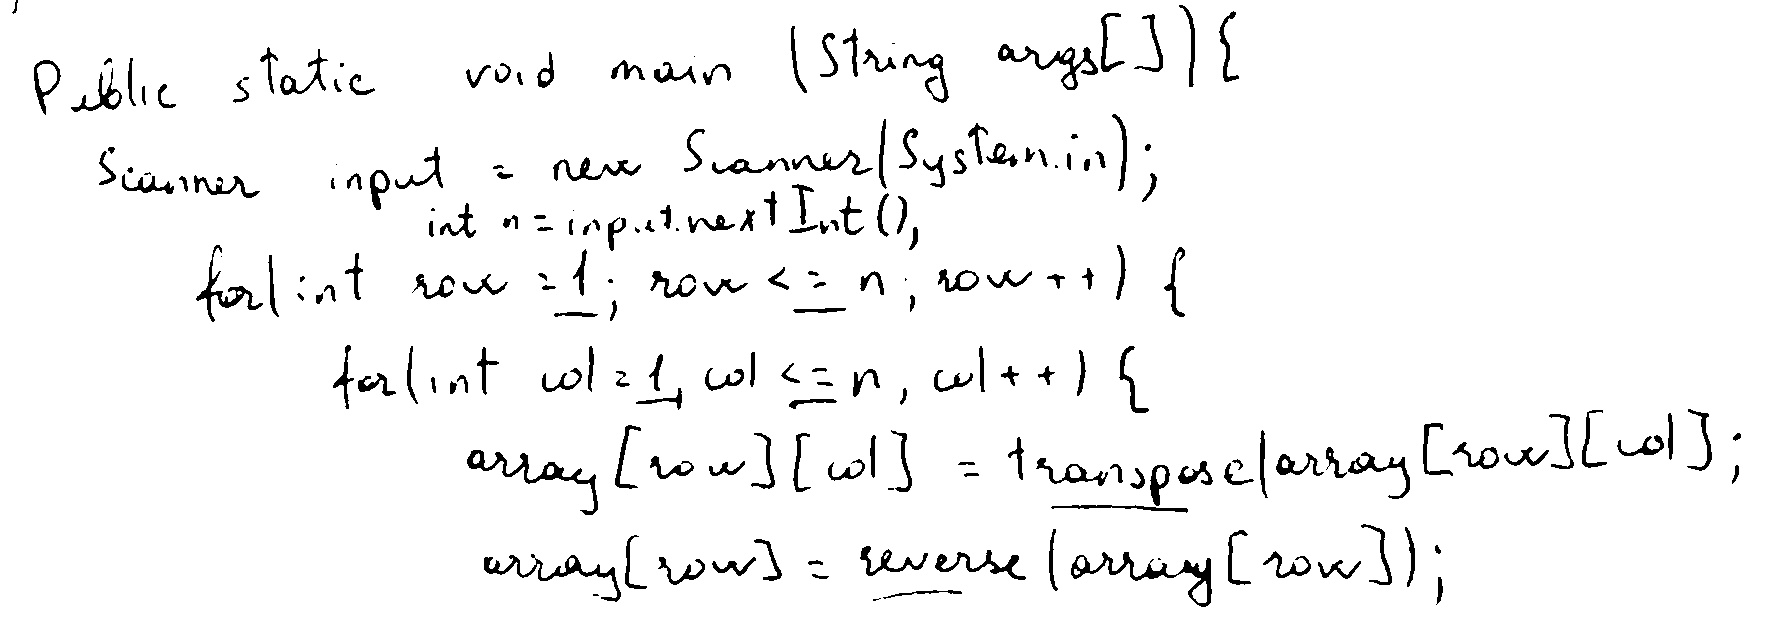 Public static void main (String args[]){
Scanner input = new Scanner(System.in);
int n = input.nextInt();
for(int row = 1; row <= n; row++) {
for(int col = 1, col <= n, col++) {
array[row][col] = transpose(array[row][col];
array[row] = reverse(array[row]);